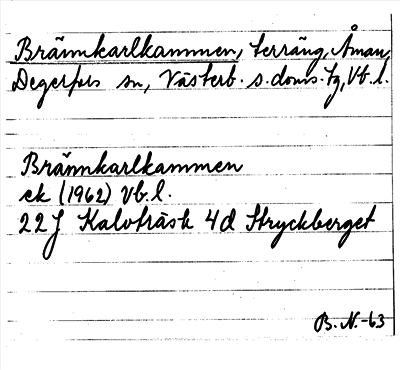 Brännkarlkammen, terräng, Åman,
Degerfors sn, Västerb. s. doms. tg, Vb. l.
Brännkarlkammen
ek (1962) Vb. l.
22 J Kalvträsk 4d Stryckberget
B. N.-63